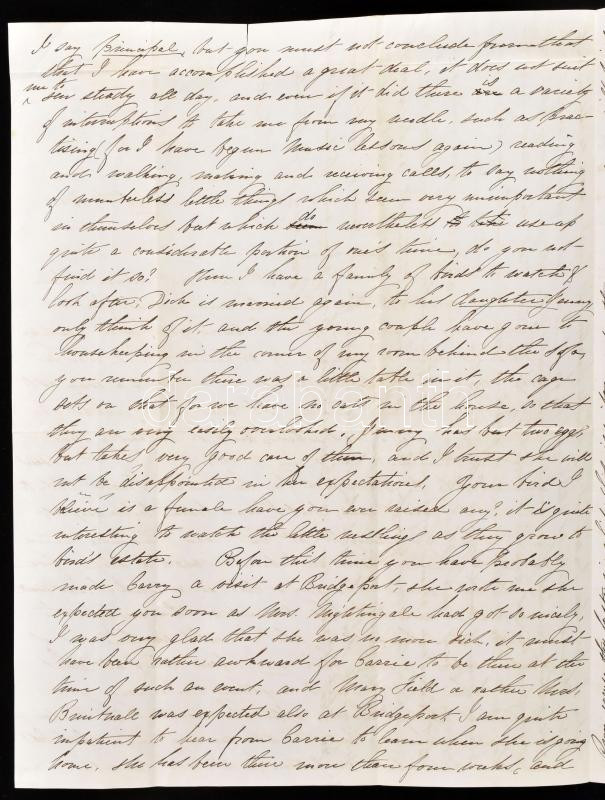 I say Principal, but you must not conclude from that
that I have accomplished a great deal, it does not suit
me to sew steady all day, and even if it did there is a variety
of interruptions to take me from my needle, such as prac-
tising (for I have begun Music lessons again) reading
and walking, making and receiving calls, to say nothing
of numberless little things which seem very unimportant
in themselves but which do nevertheless use up
quite a considerable portion of one's time, do you not
find it so? Then I have a family of birds to watch &
look after, Dick is married again, to his daughter Jenny
only think of it, and the young couple have gone to
housekeeping in the corner of my room behind the sofa,
you remember there was a little table in it, the cage
sets on that for we have no cats in the house, so that
they are easily overlooked. Jenny has but two eggs,
but takes very good care of them, and I trust she will
not be disappointed in her expectations. Your bird I
believe is a female have you ever raised any? it is quite
interesting to watch the little nestlings as they grow to
bird's estate. Before this time you have probably
made Carry a visit at Bridgeport, she wrote me she
expected you soon as Mrs. Nightingale had got so nicely,
I was very glad that she was no more sick, it must
have been rather awkward for Carrie to be there at the
time of such an event, and Mary Field or rather Mrs.
was expected also at Bridgeport I am quite
impatient to hear from Carrie to learn when she is going
home, she has been there more than four weeks, and
darabanth